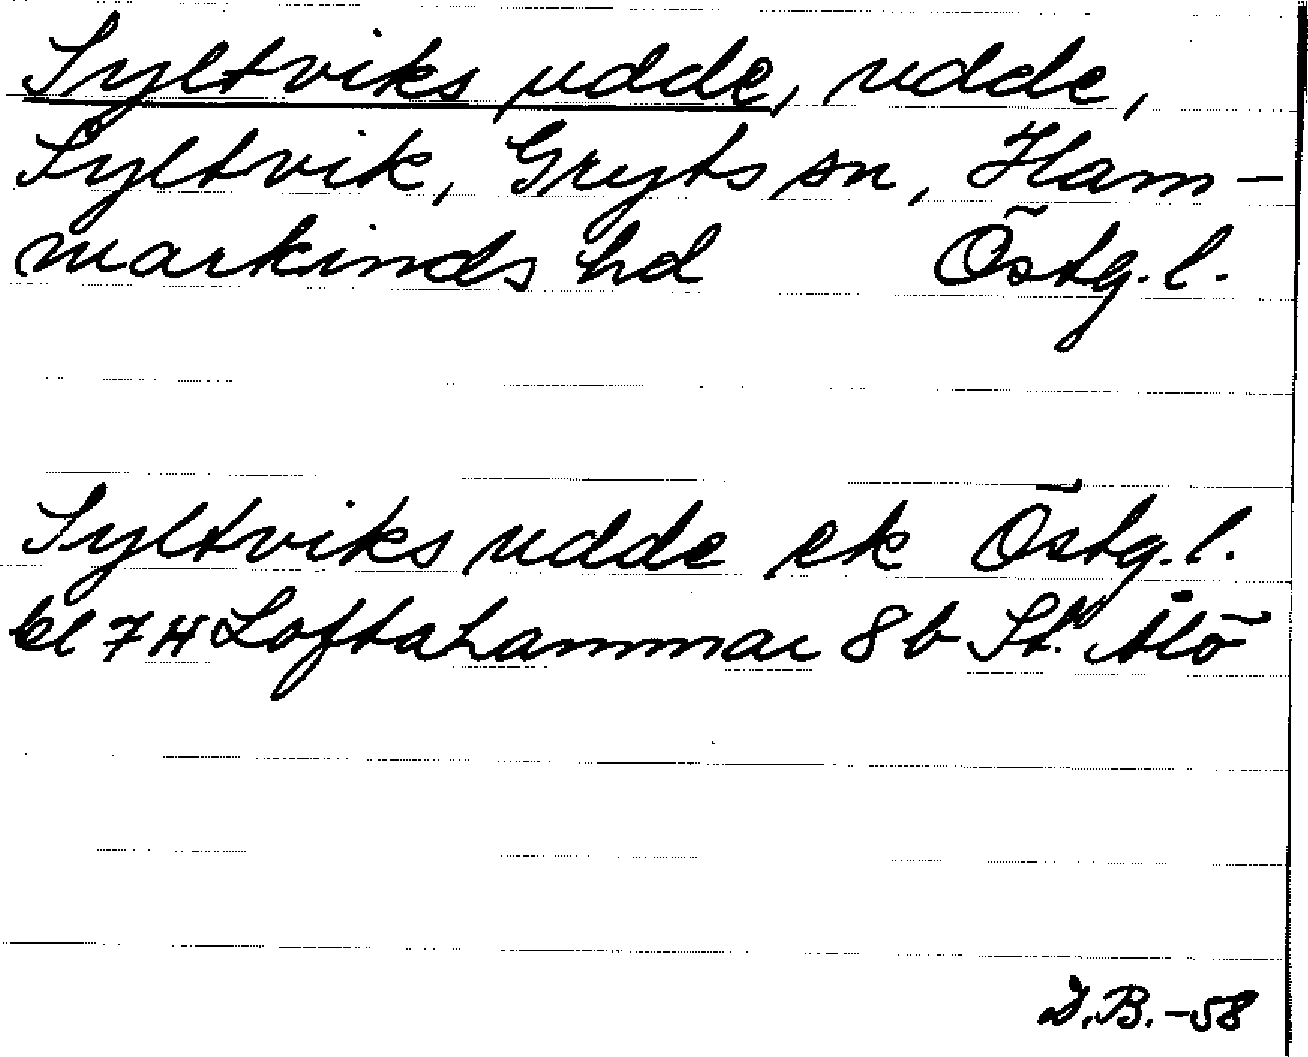 Syltviks udde, udde,
Syltvik, Gryts sn, Ham-
markinds hd Östg. l.
Syltviks udde ek Östg. l.
bl 74 Loftahammar 8b St. Ålö
D.B. -58